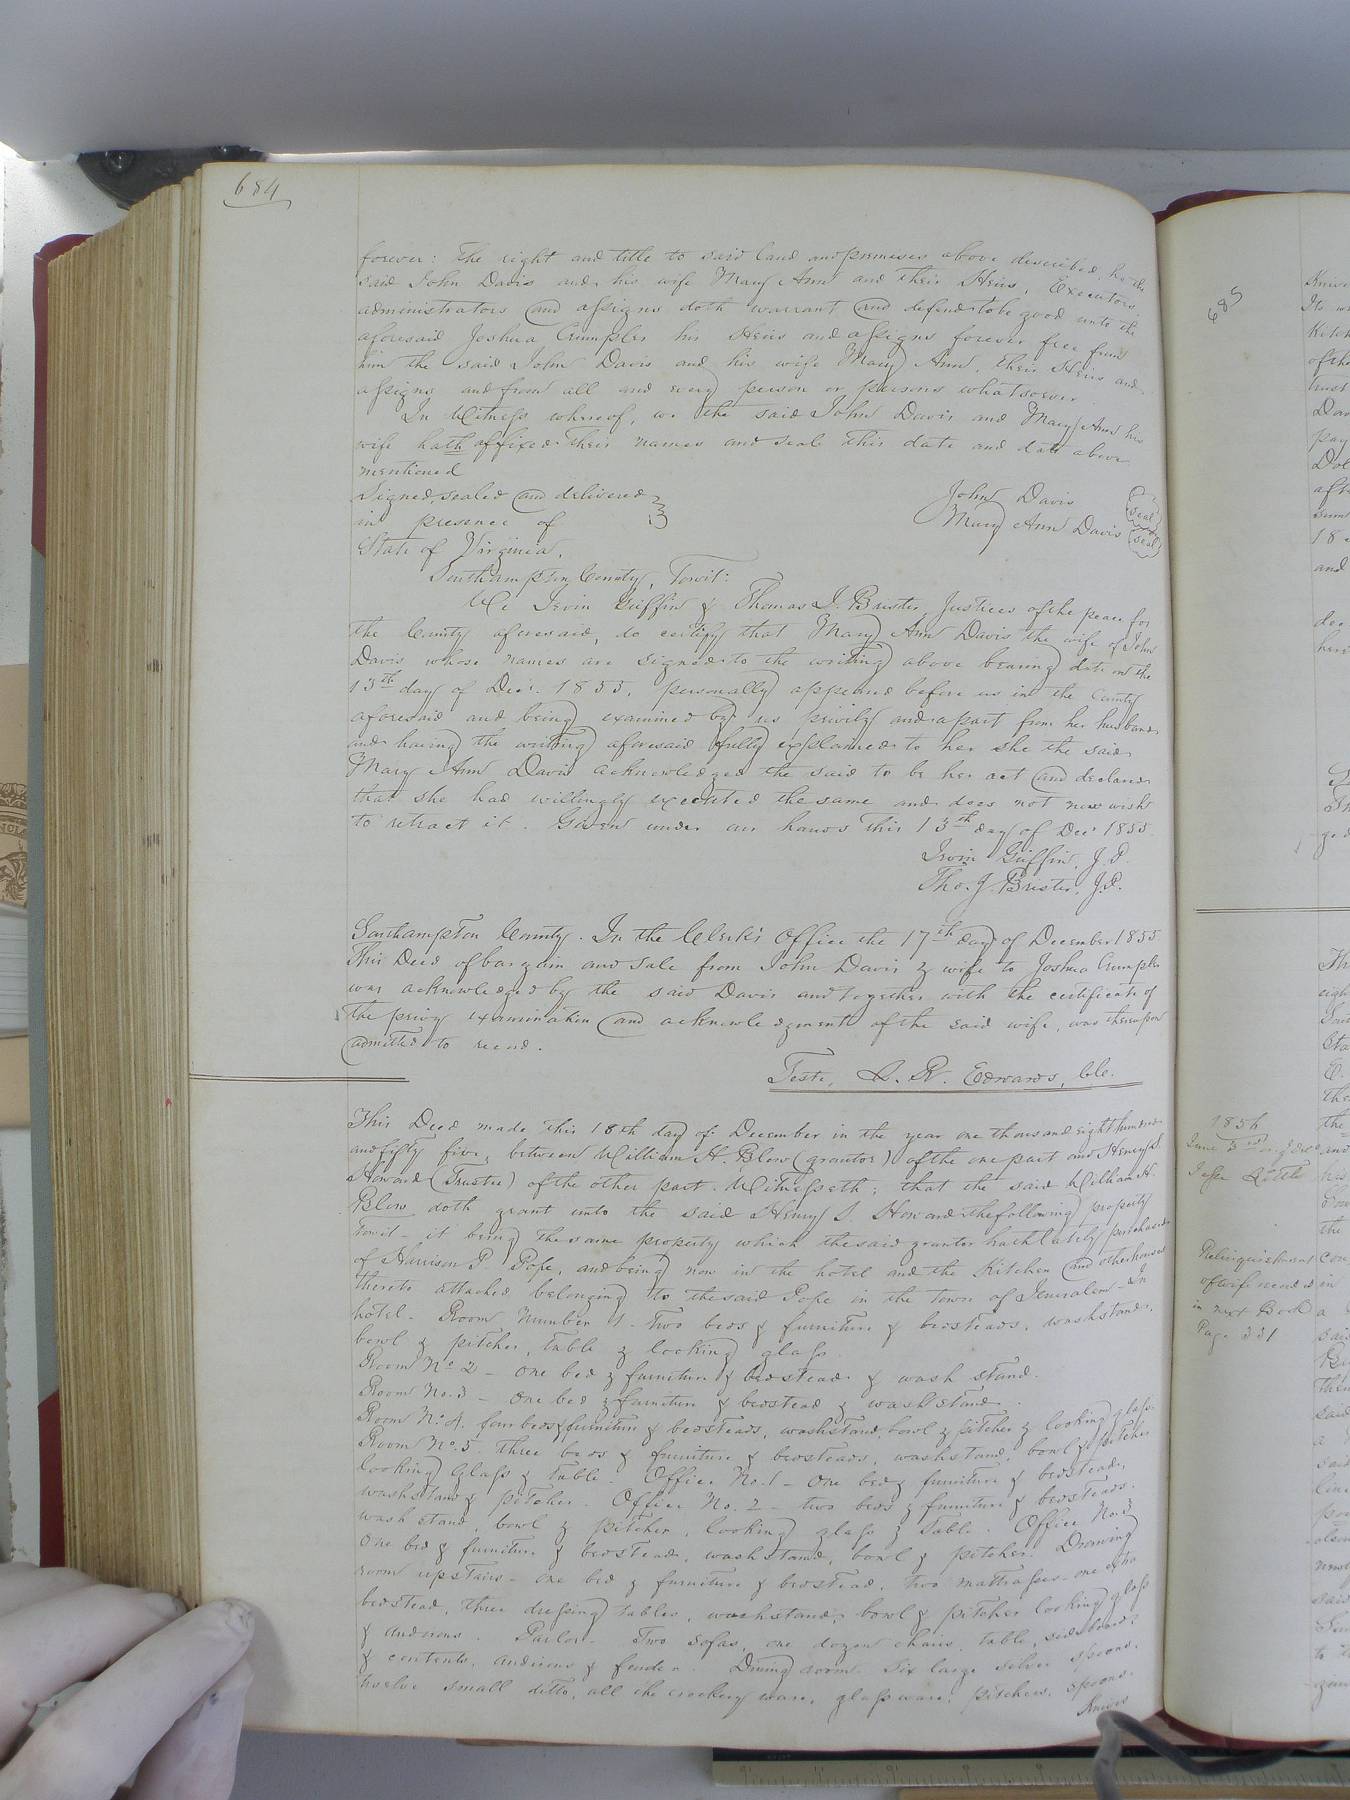 684
forever: The right and title to said land and premises above described he the
said John Davis and his wife Mary Ann and their Heirs, Executors
administrators and assigns doth warrant and defend to be good unto the
aforesaid Joshua Crumpler his Heirs and assigns forever free from
him the said John Davis and his wife Mary Ann, their Heirs and
assigns and from all and every person or persons whatsoever.
In Witness whereof, we the said John Davis and Mary Ann his
wife hath affixed their names and seals this date and date above
mentioned
Signed, sealed and delivered
in presence of
John Davis seal
Mary Ann Davis seal
State of Virginia,
Southampton County, Towit:
We Irvin Griffin & Thomas J. Brister, Justices of the peace for
the County aforesaid, do certify that Mary Ann Davis the wife of John
Davis whose names are signed to the writing above bearing date on the
13th day of Decr. 1855, personally appeared before us in the County
aforesaid and being examined by us privily and apart from her husband
and having the writing aforesaid fully explained to her she the said
Mary Ann Davis acknowledged the said to be her act and declared
that she had willingly executed the same and does not now wish
to retract it. Given under our hands this 13th day of Decr 1855.
Irvin Griffin, J.P.
Tho. J. Brister, J.P.
Southampton County. In the Clerk's Office the 17th day of December 1855
This Deed of bargain and sale from John Davis & wife to Joshua Crumpler
was acknowledged by the said Davis and together with the certificate of
the privy examination and acknowledgment of the said wife, was thereupon
admitted to record.
Teste, L. R. Edwards, Clc.
This Deed made this 18th day of December in the year one thousand eight hundred
and fifty five, between William H. Blow (grantor) of the one part and Henry S.
Howard (Trustee) of the other part. Witnesseth; that the said William H.
Blow doth grant unto the said Henry S. Howard the following property
towit - it being the same property which the said grantor hath lately purchased
of Harrison P. Pope, and being now in the hotel and the Kitchen and other houses
thereto attached belonging to the said Pope in the town of Jerusalem - In
hotel - Room Number 1 - two beds & furniture & bedsteads, washstand,
bowl & pitcher, table & looking glass.
Room No. 2 - one bed & furniture & bedstead & wash stand.
Room No. 3 - one bed & furniture & bedstead & washstand.
Room No. 4. four beds & furniture & bedsteads, washstand, bowl & pitcher & looking glass.
Room No. 5. three beds & furniture & bedsteads, washstand, bowl & pitcher
looking glass & table. Office No. 1 - one bed & furniture & bedstead,
washstand & pitcher. Office No. 2 - two beds & furniture & bedsteads.
wash stand, bowl & pitcher, looking glass & table. Office No. 3
one bed & furniture & bedstead, wash stand, bowl & pitcher. Drawing
room upstairs - one bed & furniture & bedstead, two mattrasses - one extra
bedstead, three dressing tables, washstand, bowl & pitcher looking glass
& andirons. Parlor - Two sofas, one dozen chairs, table, sideboard
& contents, andirons & fender. Dining room. Six large silver spoons,
twelve small ditto, all the crockery ware, glass ware, pitchers, spoons.
Knives
685
1856
June 3rd
Relinquishment
of wife record in
in next Book
Page 331